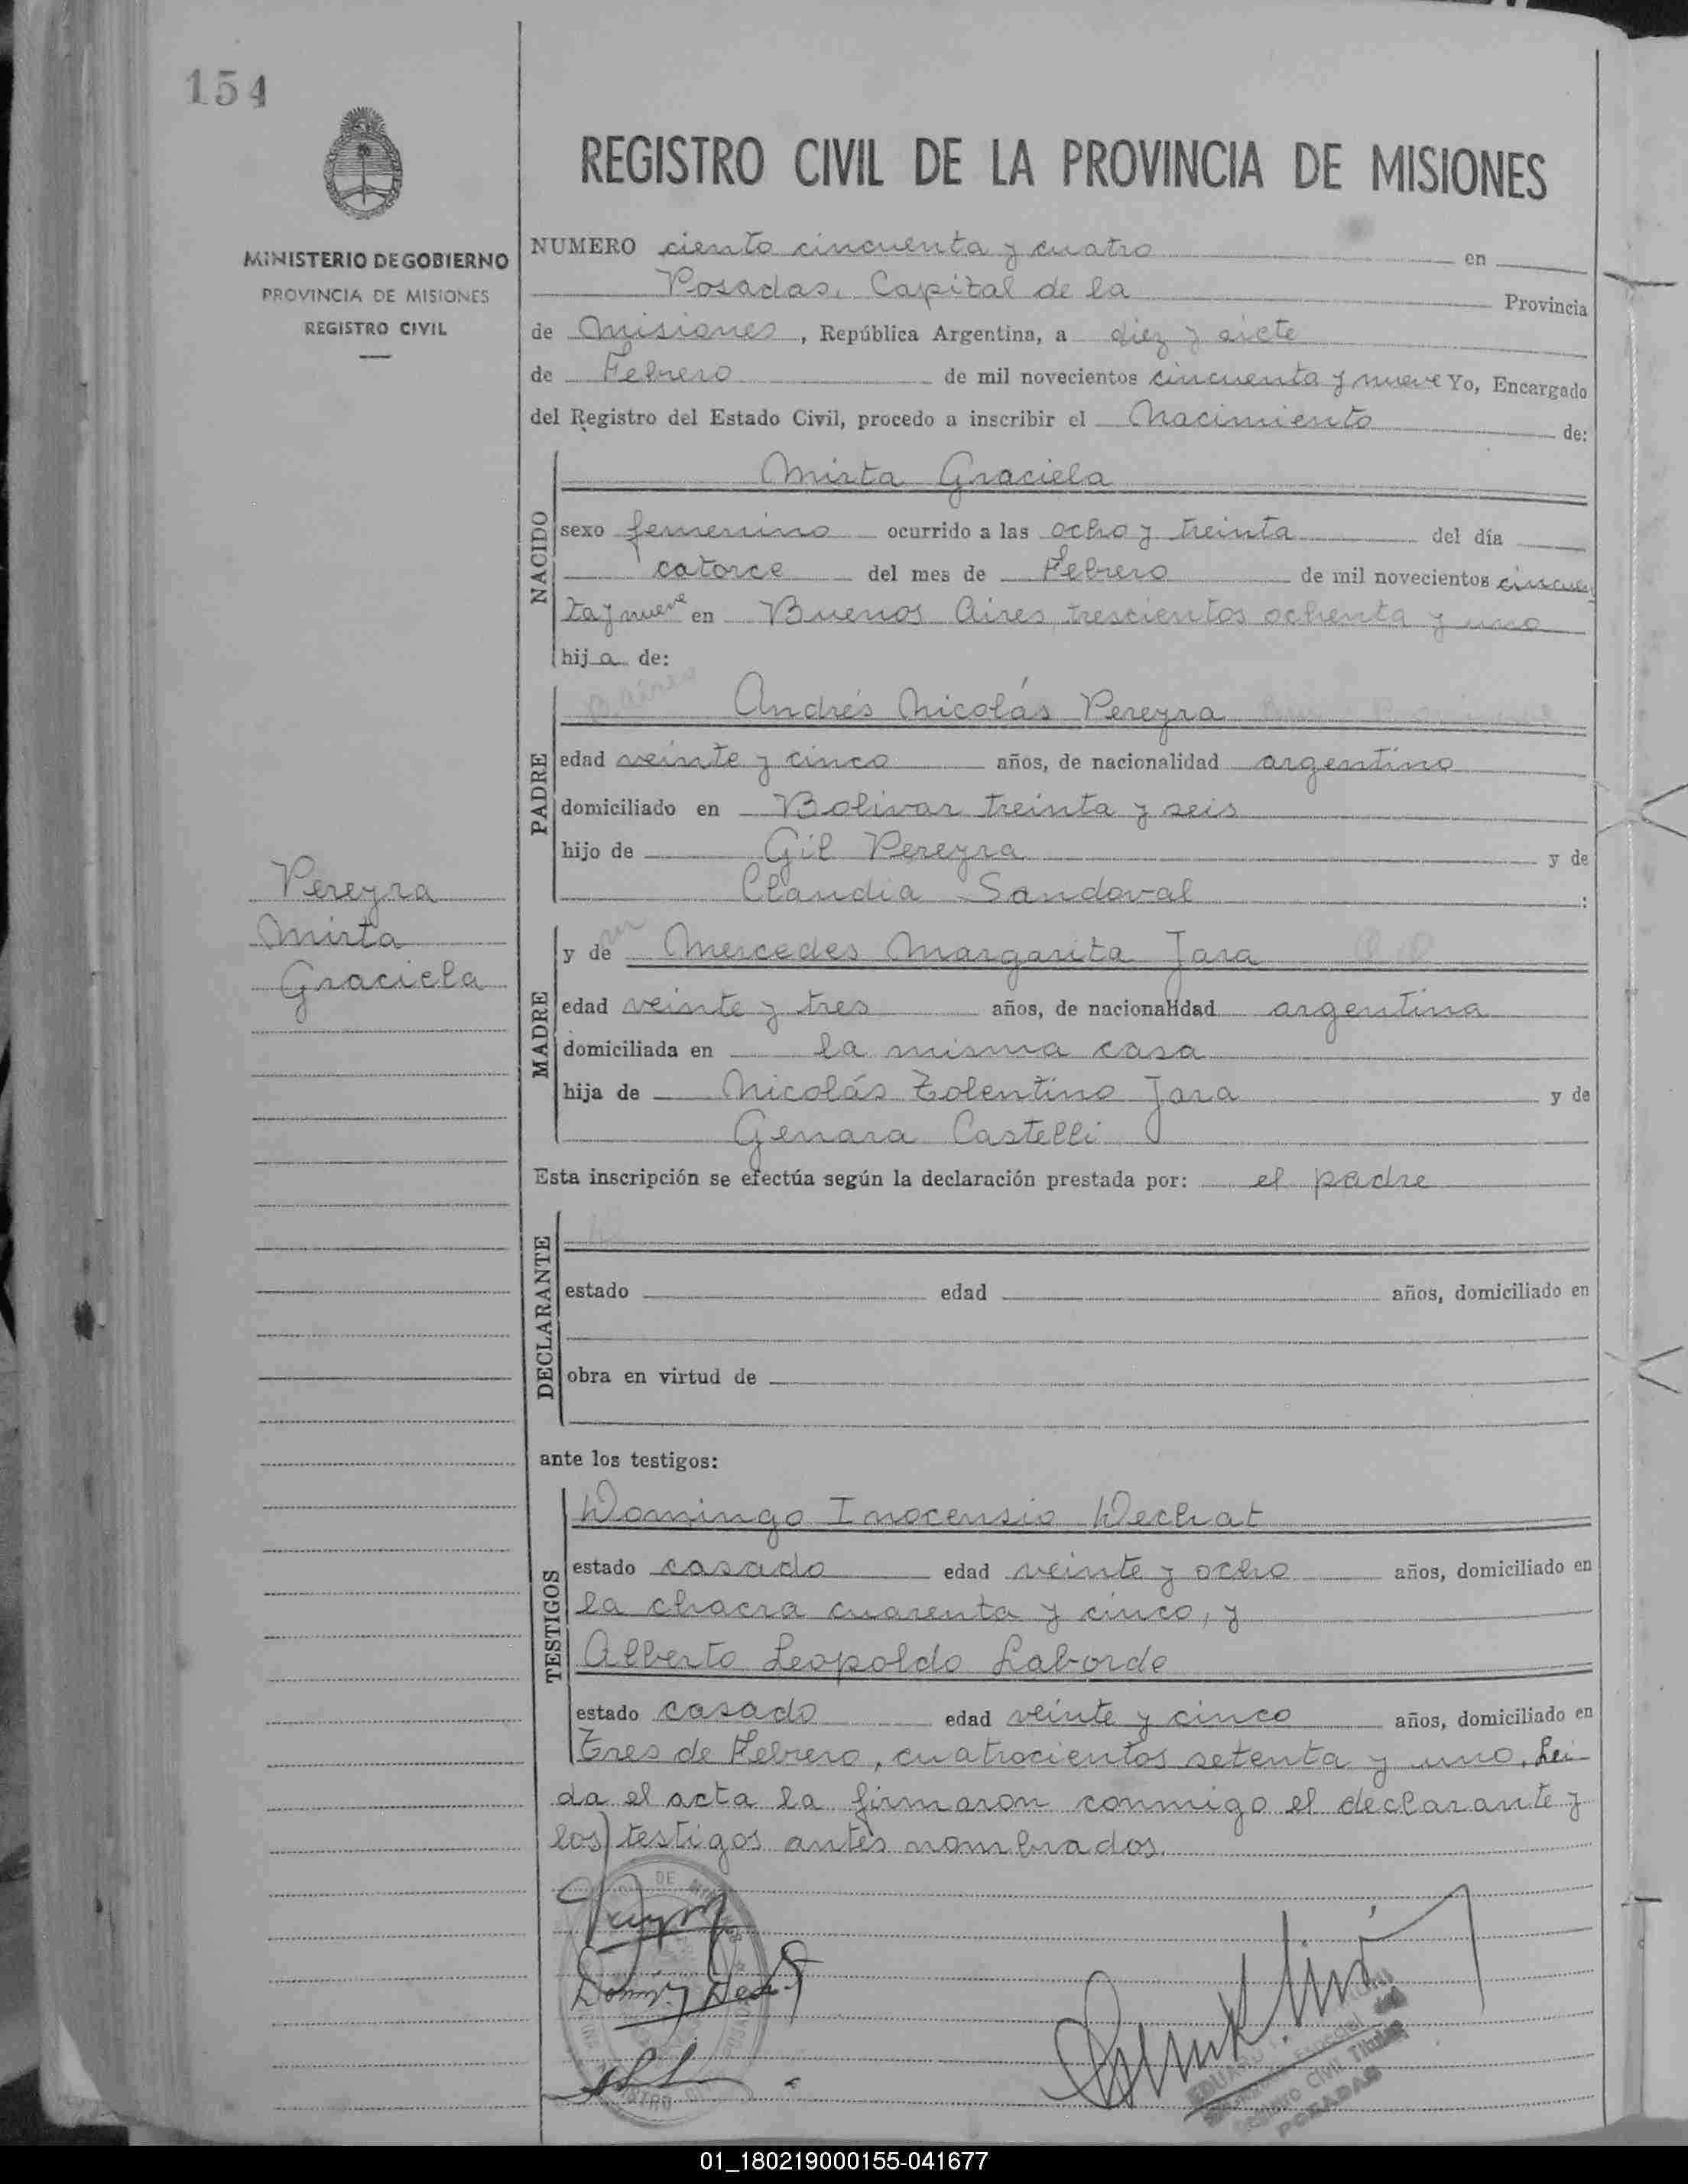 154
MINISTERIO DE GOBIERNO
PROVINCIA DE MISIONES
REGISTRO CIVIL
Pereyra
Mirta
Graciela
REGISTRO CIVIL DE LA PROVINCIA DE MISIONES
NUMERO ciento cincuenta y cuatro en
Posadas, Capital de la Provincia
de Misiones, República Argentina, a diez y siete
de Febrero de mil novecientos cincuenta y nueve Yo, Encargado
del Registro del Estado Civil, procedo a inscribir el Nacimiento de:
NACIDO
Mirta Graciela
sexo femenino ocurrido a las ocho y treinta del día
catorce del mes de Febrero de mil novecientos cincuen
ta y nueve en Buenos Aires trescientos ochenta y uno
hija de:
PADRE
Andrés Nicolás Pereyra
edad veinte y cinco años, de nacionalidad argentino
domiciliado en Bolivar treinta y seis
hijo de Gil Pereyra y de
Claudia Sandoval :
MADRE
y de Mercedes Margarita Jara
edad veinte y tres años, de nacionalidad argentina
domiciliada en la misma casa
hija de Nicolás Tolentino Jara y de
Genara Castelli
Esta inscripción se efectúa según la declaración prestada por: el padre
DECLARANTE
estado edad años, domiciliado en
obra en virtud de
ante los testigos:
TESTIGOS
Domingo Inocensio Dechat
estado casado edad veinte y ocho años, domiciliado en
la chacra cuarenta y cinco, y
Alberto Leopoldo Laborde
estado casado edad veinte y cinco años, domiciliado en
Tres de Febrero, cuatrocientos setenta y uno. Lei
da el acta la firmaron conmigo el declarante y
los testigos antes nombrados.
POSADAS
01_180219000155-041677